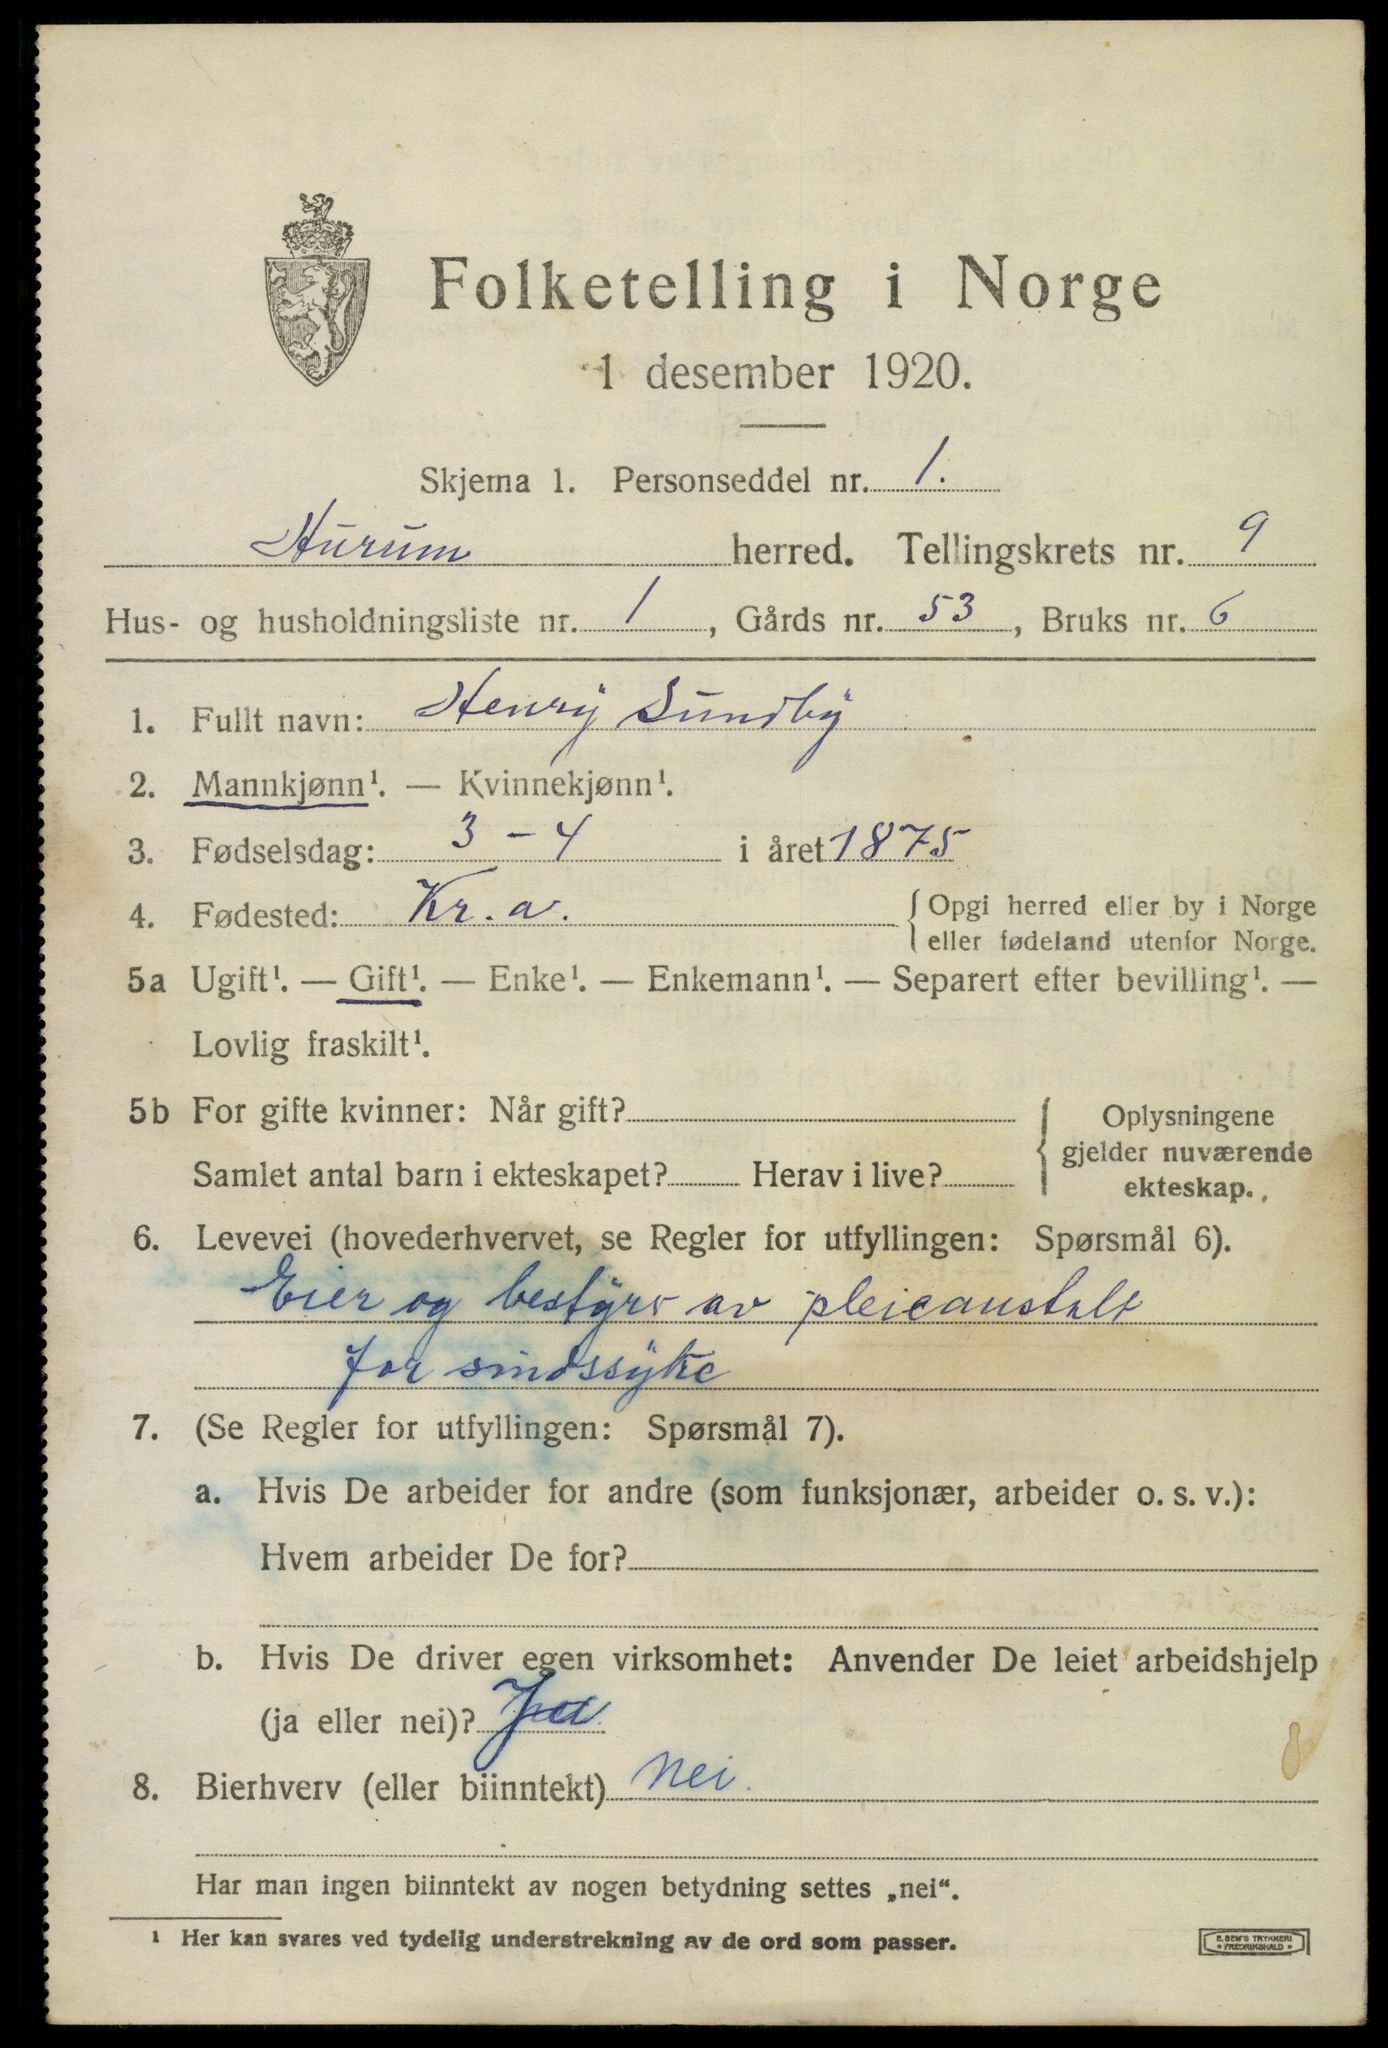 Folketelling i Norge
1 desember 1920.
Skjema 1. Personseddel nr. 1.
Hurum herred. Tellingskrets nr. 9
Hus- og husholdningsliste nr. 1, Gårds nr. 53, Bruks nr. 6
1. Fullt navn: Henry Sundby
2. Mannkjønn¹. — Kvinnekjønn¹.
3. Fødselsdag: 3 - 4 i året 1875
4. Fødested: Kr.a. { Opgi herred eller by i Norge
eller fødeland utenfor Norge.
5a Ugift¹. — Gift¹. — Enke¹. — Enkemann¹. — Separert efter bevilling¹. —
Lovlig fraskilt¹.
5b For gifte kvinner: Når gift?
Samlet antal barn i ekteskapet? Herav i live?
{ Oplysningene
gjelder nuværende
ekteskap.
6. Levevei (hovederhvervet, se Regler for utfyllingen: Spørsmål 6).
Eier og bestyrer av pleieanstalt
for sindssyke
7. (Se Regler for utfyllingen: Spørsmål 7).
a. Hvis De arbeider for andre (som funksjonær, arbeider o. s. v.):
Hvem arbeider De for?
b. Hvis De driver egen virksomhet: Anvender De leiet arbeidshjelp
(ja eller nei)? Ja
8. Bierhverv (eller biinntekt) Nei.
Har man ingen biinntekt av nogen betydning settes „nei“.
¹ Her kan svares ved tydelig understrekning av de ord som passer.
E. SEM'S TRYKKERI
• FREDRIKSHALD •